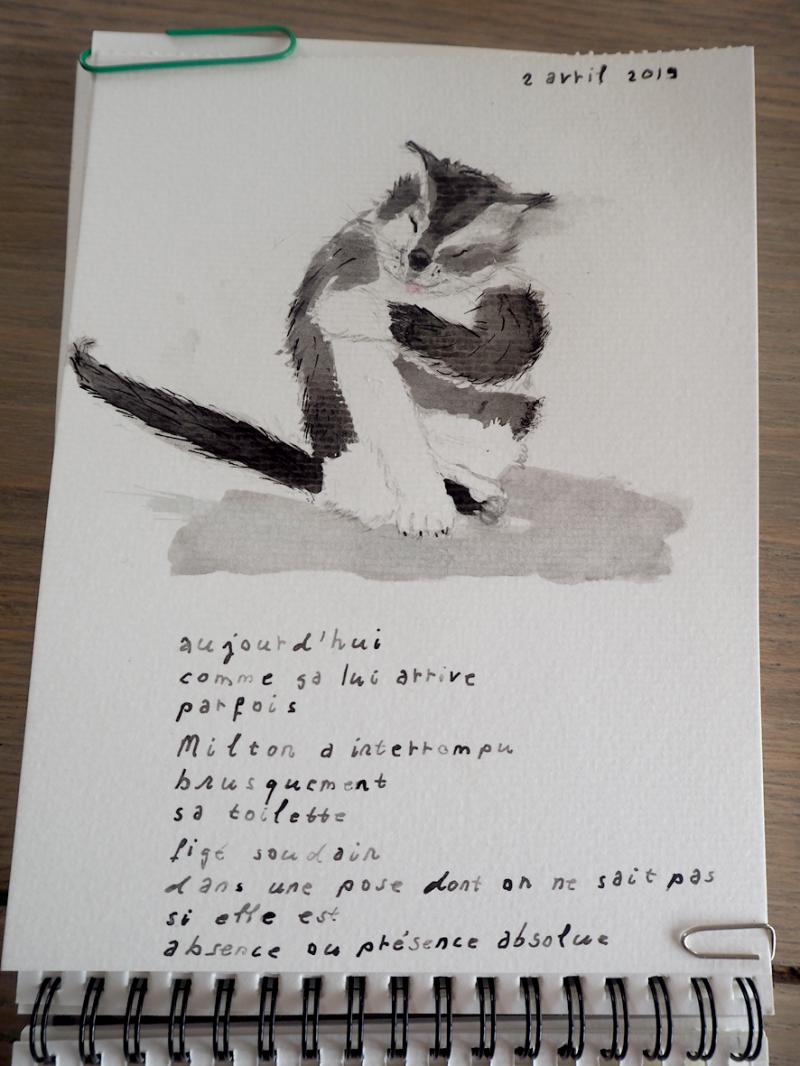 2 avril 2019
aujourd'hui
comme ça lui arrive
parfois
Milton a interrompu
brusquement
sa toilette
figé soudain
dans une pose dont on ne sait pas
si elle est
absence ou présence absolue